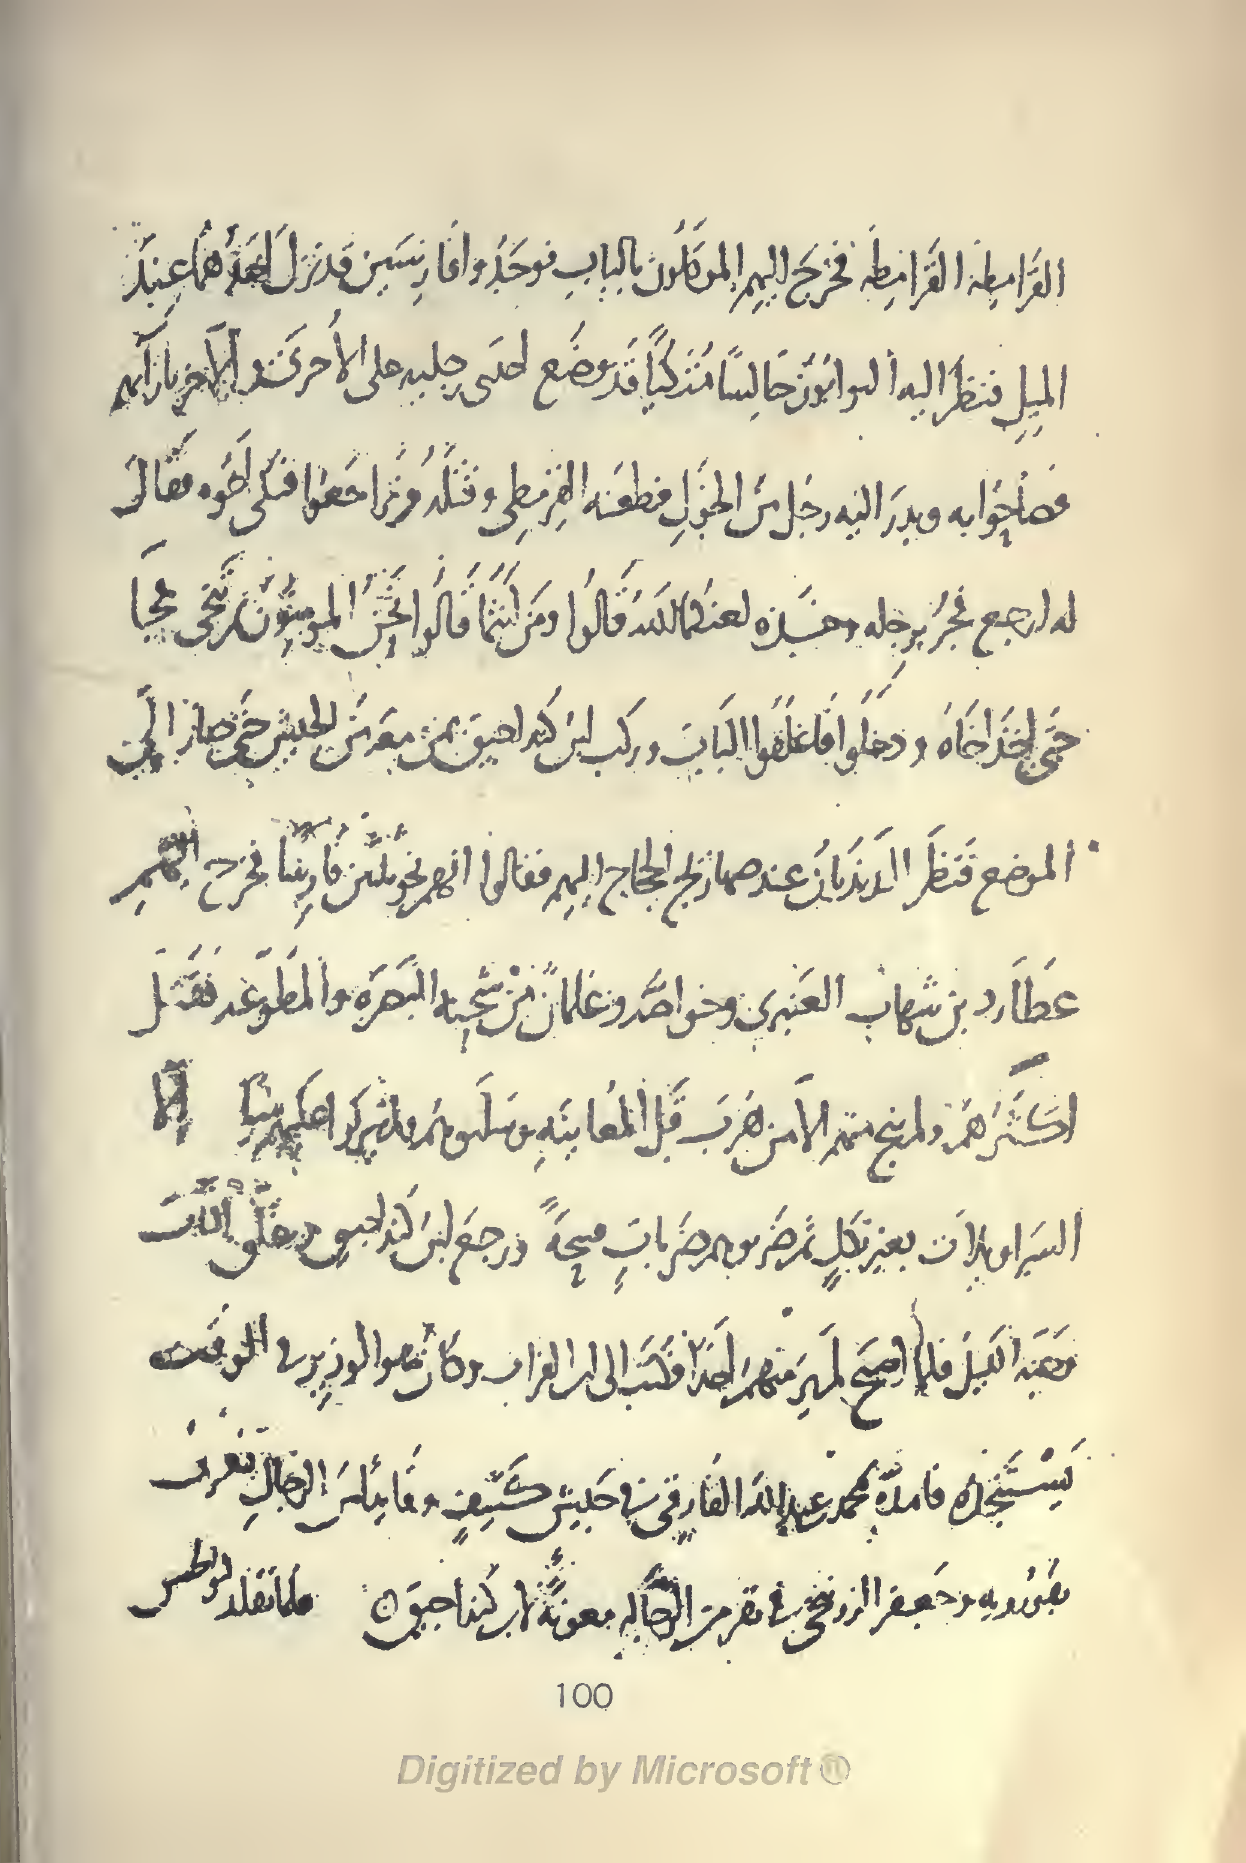 القرامطة القرامطة فخرج اليهم الموكلون بالباب فوجدوا فارسين قد نزل احدهما عند
الميل فنظر اليه البوابون جالسا متذكيا قد وضع احدى رجليه على الأخرى والآخر بازآيهم
فصاحوا به وبدر اليه رجل من الخول فطعنه القرمطي وقتله وتراجعوا فنكى اخوه فقال
له ارجع فجر برجله وخذه لعنكما الله قالوا ومن انتما قالوا نحن المومنون فتنحى
حتى اخذ اخاه ودخلوا فاغلقوا الباب وركب ابن كنداجيق من معه من الجيش حتى صار الى
الموضع فنظر الديدبان عند صهاريج الحجاج اليهم فقالوا انهم نحو ثلثين فارسا فخرج اليهم
عطارد بن شهاب العنبري وخواصه وغلمان من شحنه البصره والمطوعه فقتل
اكثرهم ولم ينج منهم الا من هرب قبل المعاينه وسلبوهم ولم يتركوا عليهم شيا الا
السراويلات بغير تكك ثم ضربوهم ضربات قبيحة ورجع ابن كنداجيق وغلق الباب
وجنه الليل فلما اصبح لم ير منهم احدا فكتب الى ابن الفرات وكان هو الوزير في الوقت
يستنجده فامده محمد بن عبدالله الفارقي في جيش كثيف وقايد من الرجال يعرف
وجعفر الزرنجي في نفر من الرجاله معونة لابن كنداجيق ه فلما تقلد
100
Digitized by Microsoft®